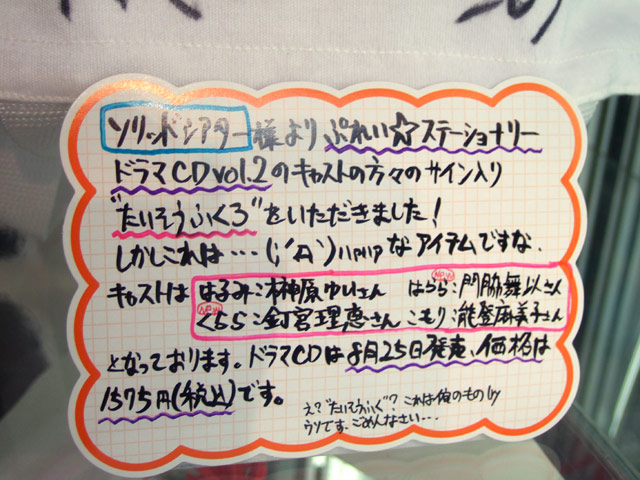 ソリッドシアター様より ぷれい☆ステーショナリー
ドラマCD vol.2のキャストの方々のサイン入り
"たいそうふくろ"をいただきました!
しかしこれは…(;´Д`)ハァハァなアイテムですな.
キャストは はるみ:榊原ゆいさん はらら:門脇舞以さん
NEW
くらら:釘宮理恵さん こもり:能登麻美子さん
NEW
となっております。ドラマCDは8月25日発売、価格は
1575円(税込)です。
え?"たいそうふく"?これは俺のもの
ウソです.ごめんなさい…